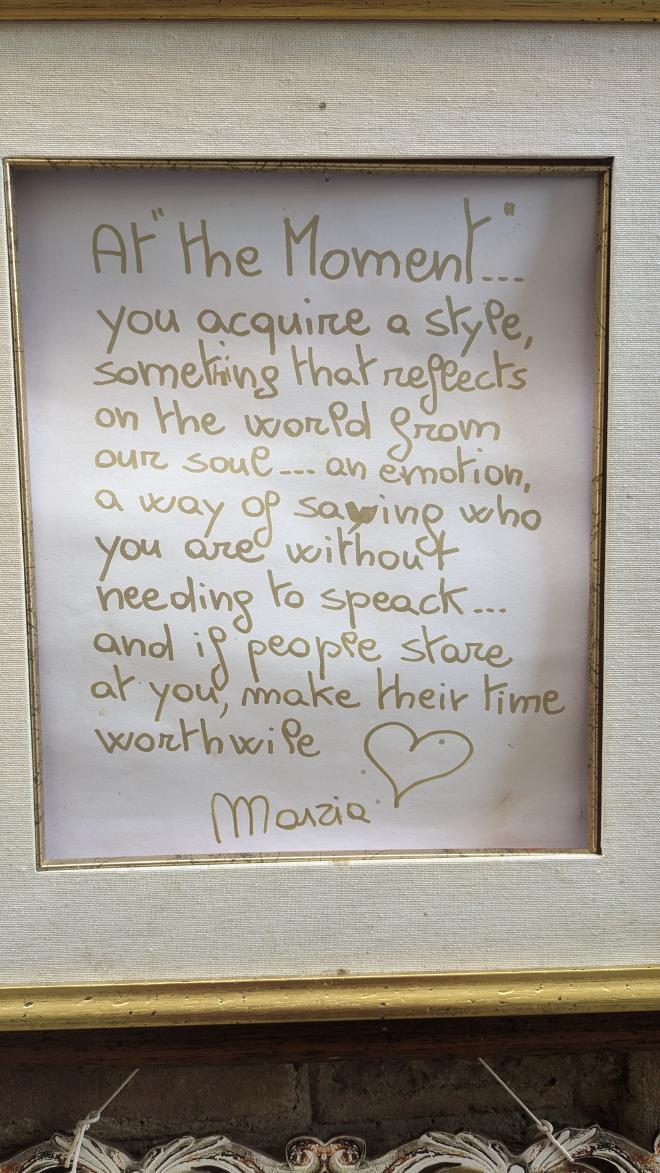 At "the Moment"...
you acquire a style,
something that reflects
on the world from
our soul... an emotion,
a way of saying who
you are without
needing to speack...
and if people stare
at you, make their time
worthwile
Marzia